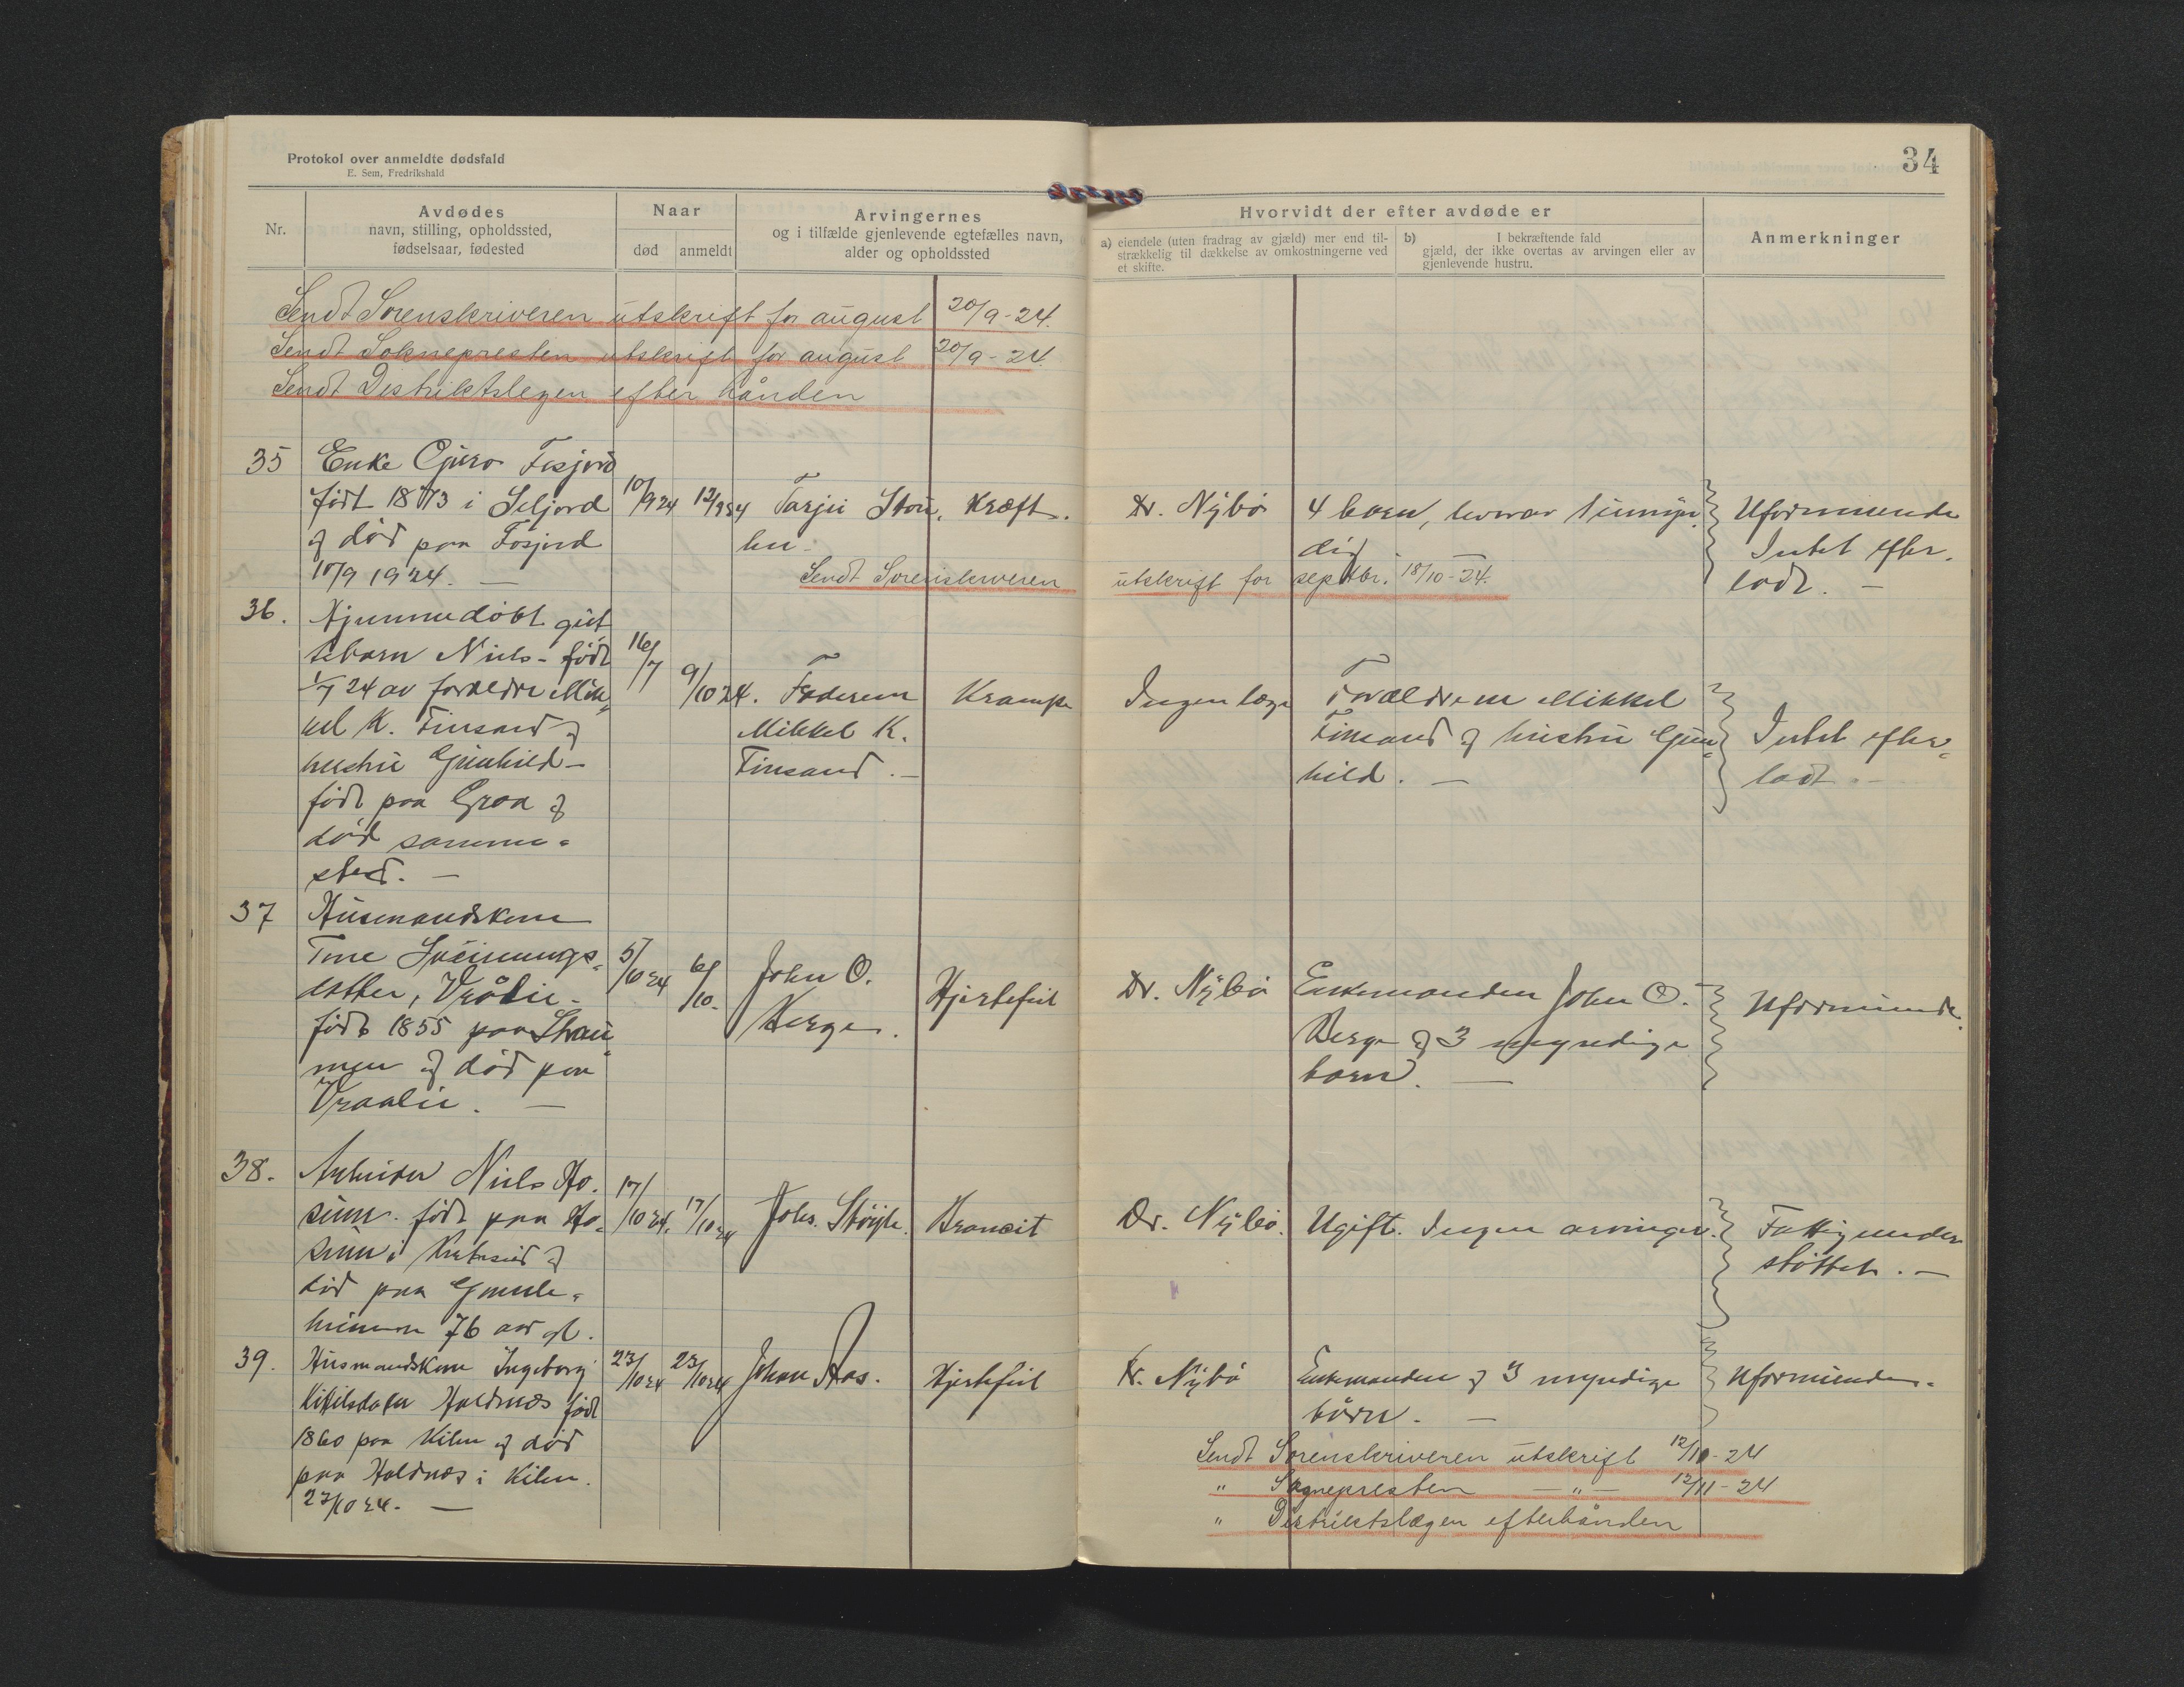 Protokol over anmeldte dødsfald
E. Sem, Fredrikshald
34
Nr.
Avdødes
navn, stilling, opholdssted,
fødselsaar, fødested
Naar
død
anmeldt
Arvingernes
og i tilfælde gjenlevende egtefælles navn,
alder og opholdssted
Hvorvidt der efter avdøde er
a) eiendele (uten fradrag av gjæld) mer end til-
strækkelig til dækkelse av omkostningerne ved
et skifte.
b) I bekræftende fald
gjæld, der ikke overtas av arvingen eller av
gjenlevende hustru.
Anmerkninger
Sendt Sorenskriveren utskrift for august 20/9-24.
Sendt Soknepresten utskrift for august 20/9-24.
Sendt Distriktslegen efter hånden
35
Enke Gjuro Fosjord
født 1873 i Seljord
og död paa Fosjord
10/9 1924. —
10/9 24
12/9 24
Tarjei
Kræft.
Dr. Nybö
4 born, hvorav 1 umyn-
dig
Uformuende
Intet efter-
ladt. —
Sendt Sorenskriveren utskrift for septbr. 18/10-24.
36.
Hjemmedöbt gut
tebarn Niels - född
1/7 24 av foreldre Mik-
kel K. Finsand og
hustru Gunhild -
födt paa Groa og
död samme-
sted. —
16/7
9/10 24.
Faderen
Mikkel K.
Finsand. —
Krampe
Ingen læge
Forældrene Mikkel
Finsand og hustru Gun-
hild. —
Intet efter-
ladt. —
37
Husmandskone
Tone
datter, Vrålie -
födt 1855 paa Strau-
men og död paa
Vraalie. —
5/10 24
6/10-
John O.
Berge.
Hjertefeil
Dr. Nybö
Enkemanden John O.
Berge og 3 myndige
born. —
Uformuende.
38.
Arbeider Niels Ho-
suin. födt paa Ho-
suin i og
död paa Gamle-
heimen 76 aar gl.
17/10 24.
17/10 24
Johs. Støyle.
Broncit
Dr. Nybö.
Ugift. Ingen arvinger.
Fattigunder
støttet. —
39.
Husmandskone Ingeborg
Kittilsdatter Holdnes födt
1860 paa Kilen og död
paa Holdnes i Kilen.
23/10 24. —
23/10 24
23/10 24
Johan Aas.
Hjertefeil
Dr. Nybö
Enkemanden og 3 myndige
börn. —
Uformuende.
Sendt Sorenskriveren utskrift 12/11-24
" Sognepresten — " — 12/11-24
" Distriktslægen efterhånden